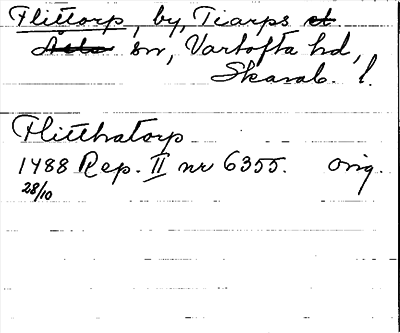 Flittorp, by, Tiarps
sn, Vartofta hd,
Skarab. l.
Flitthatorp
1488 Rep. II nr 6355. orig.
28/10